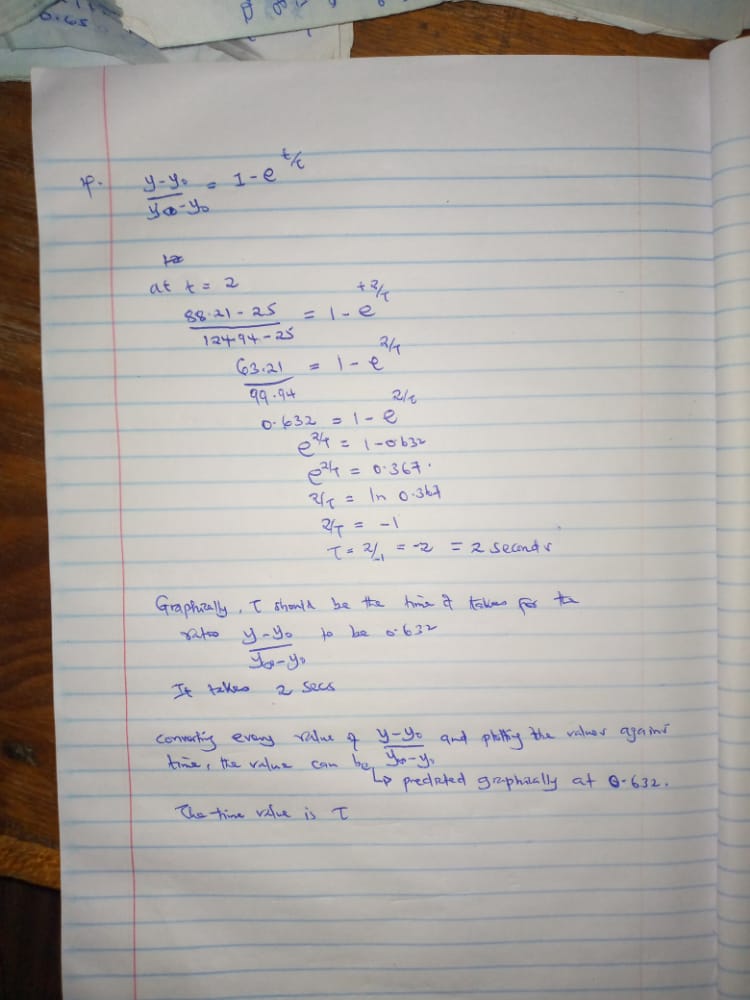 0.65
4. y-y₀ / y∞-y₀ = 1-e^t/τ
at t = 2
88.21-25 / 124.94-25 = 1-e^+2/τ
63.21 / 99.94 = 1-e^2/τ
0.632 = 1-e^2/τ
e^2/τ = 1-0.632
e^2/τ = 0.367.
2/τ = ln 0.367
2/τ = -1
τ = 2/-1 = -2 = 2 seconds
Graphically, τ should be the time it takes for the
ratio y-y₀ / y∞-y₀ to be 0.632
It takes 2 secs
Converting every value of y-y₀ / y∞-y₀ and plotting the values against
time, the value can be
↳ predicted graphically at 0.632.
The time value is τ